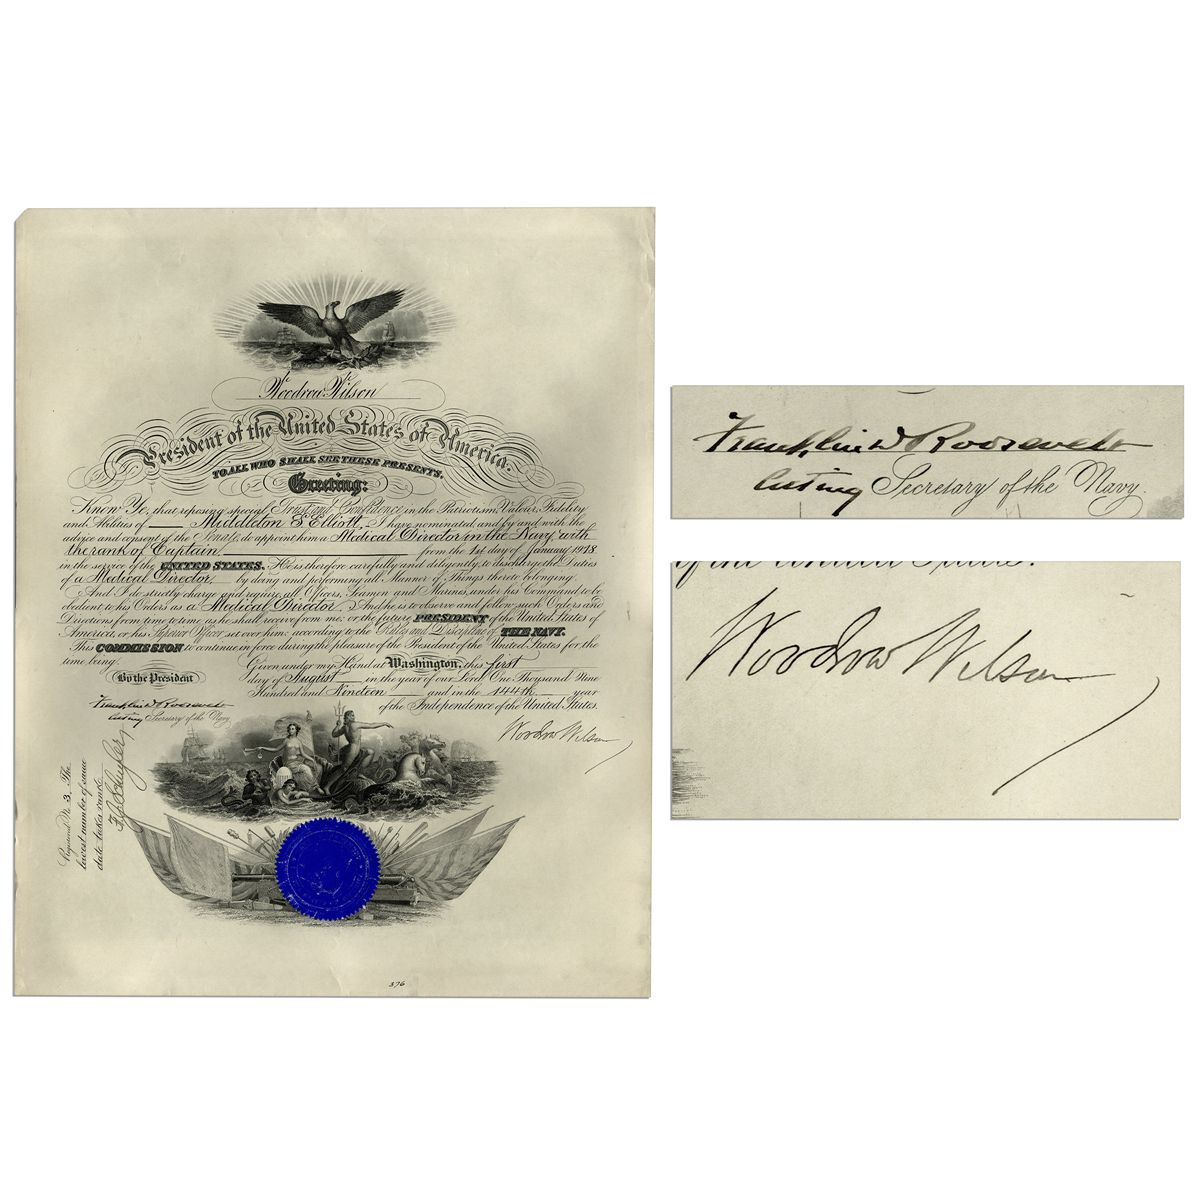 Woodrow Wilson
President of the United States of America.
TO ALL WHO SHALL SEE THESE PRESENTS,
Greeting:
Know Ye, that reposing special Trust and Confidence in the Patriotism, Valour, Fidelity
and Abilities of Middleton S. Elliott, I have nominated, and by and with the
advice and consent of the Senate, do appoint him a Medical Director in the Navy with
the rank of Captain, from the 1st day of January 1918
in the service of the UNITED STATES. He is therefore carefully and diligently, to discharge the Duties
of a Medical Director, by doing and performing all Manner of Things thereto belonging.
And I do strictly charge and require all Officers, Seamen and Marines, under his Command to be
obedient to his Orders as a Medical Director, And he is to observe and follow such Orders and
Directions from time to time as he shall receive from me, or the future PRESIDENT of the United States of
America, or his Superior Officer set over him, according to the Rules and Discipline of THE NAVY.
This COMMISSION to continue in force during the pleasure of the President of the United States for the
time being.
Given under my Hand at Washington, this first
day of August in the year of our Lord One Thousand Nine
Hundred and Nineteen and in the 144th year
of the Independence of the United States.
By the President
Franklin D Roosevelt
Acting Secretary of the Navy.
Woodrow Wilson
Registered No. 3. The
lowest number of same
date takes rank.
376
Franklin D Roosevelt
Acting Secretary of the Navy.
of the United States.
Woodrow Wilson